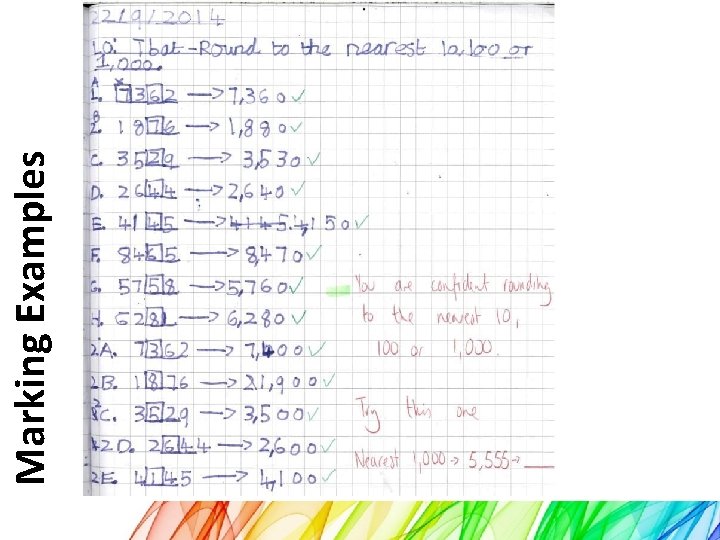 Marking Examples
22/9/2014
LO: Tbat - Round to the nearest 10, 100 or
1,000.
A
1. 7362 → 7,360 ✓
B
2. 1876 → 1,880 ✓
C. 3529 → 3,530 ✓
D. 2644 → 2,640 ✓
E. 4145 → 4145. 4,150 ✓
F. 8465 → 8,470 ✓
G. 5758 → 5,760 ✓
H. 6281 → 6,280 ✓
2A. 7362 → 7,400 ✓
2B. 1876 → 1,900 ✓
2C. 3529 → 3,500 ✓
2D. 2644 → 2,600 ✓
2E. 4145 → 4,100 ✓
You are confident rounding
to the nearest 10,
100 or 1,000.
Try this one
Nearest 1,000 → 5,555 → ____